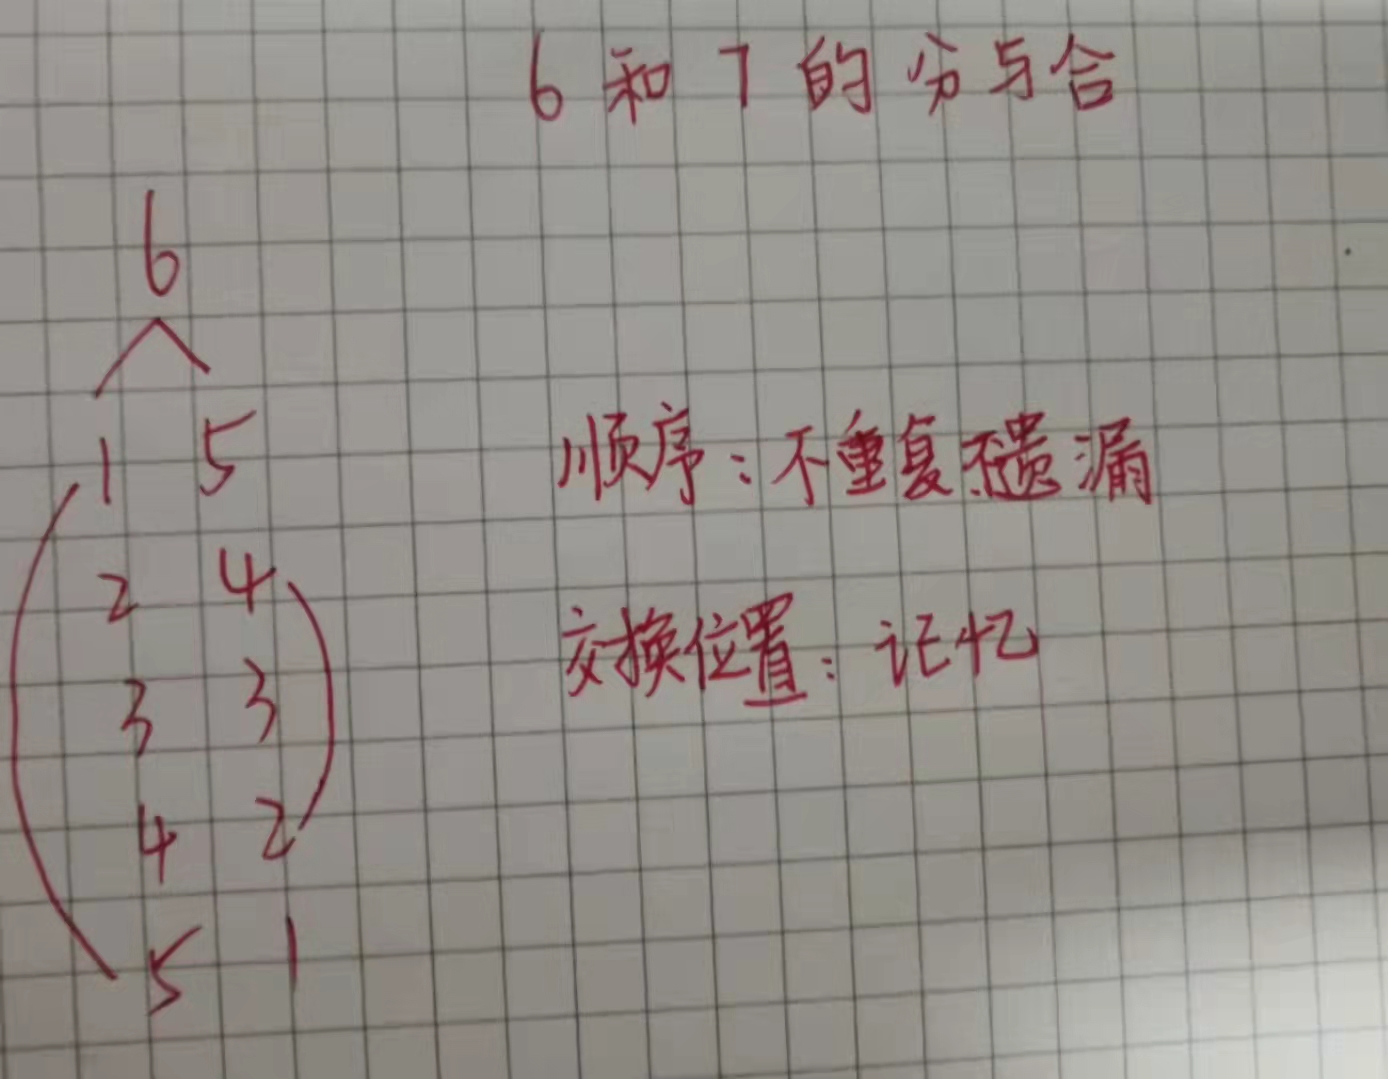 6和7的分与合
6
1 5
2 4
3 3
4 2
5 1
顺序：不重复不遗漏
交换位置：记忆